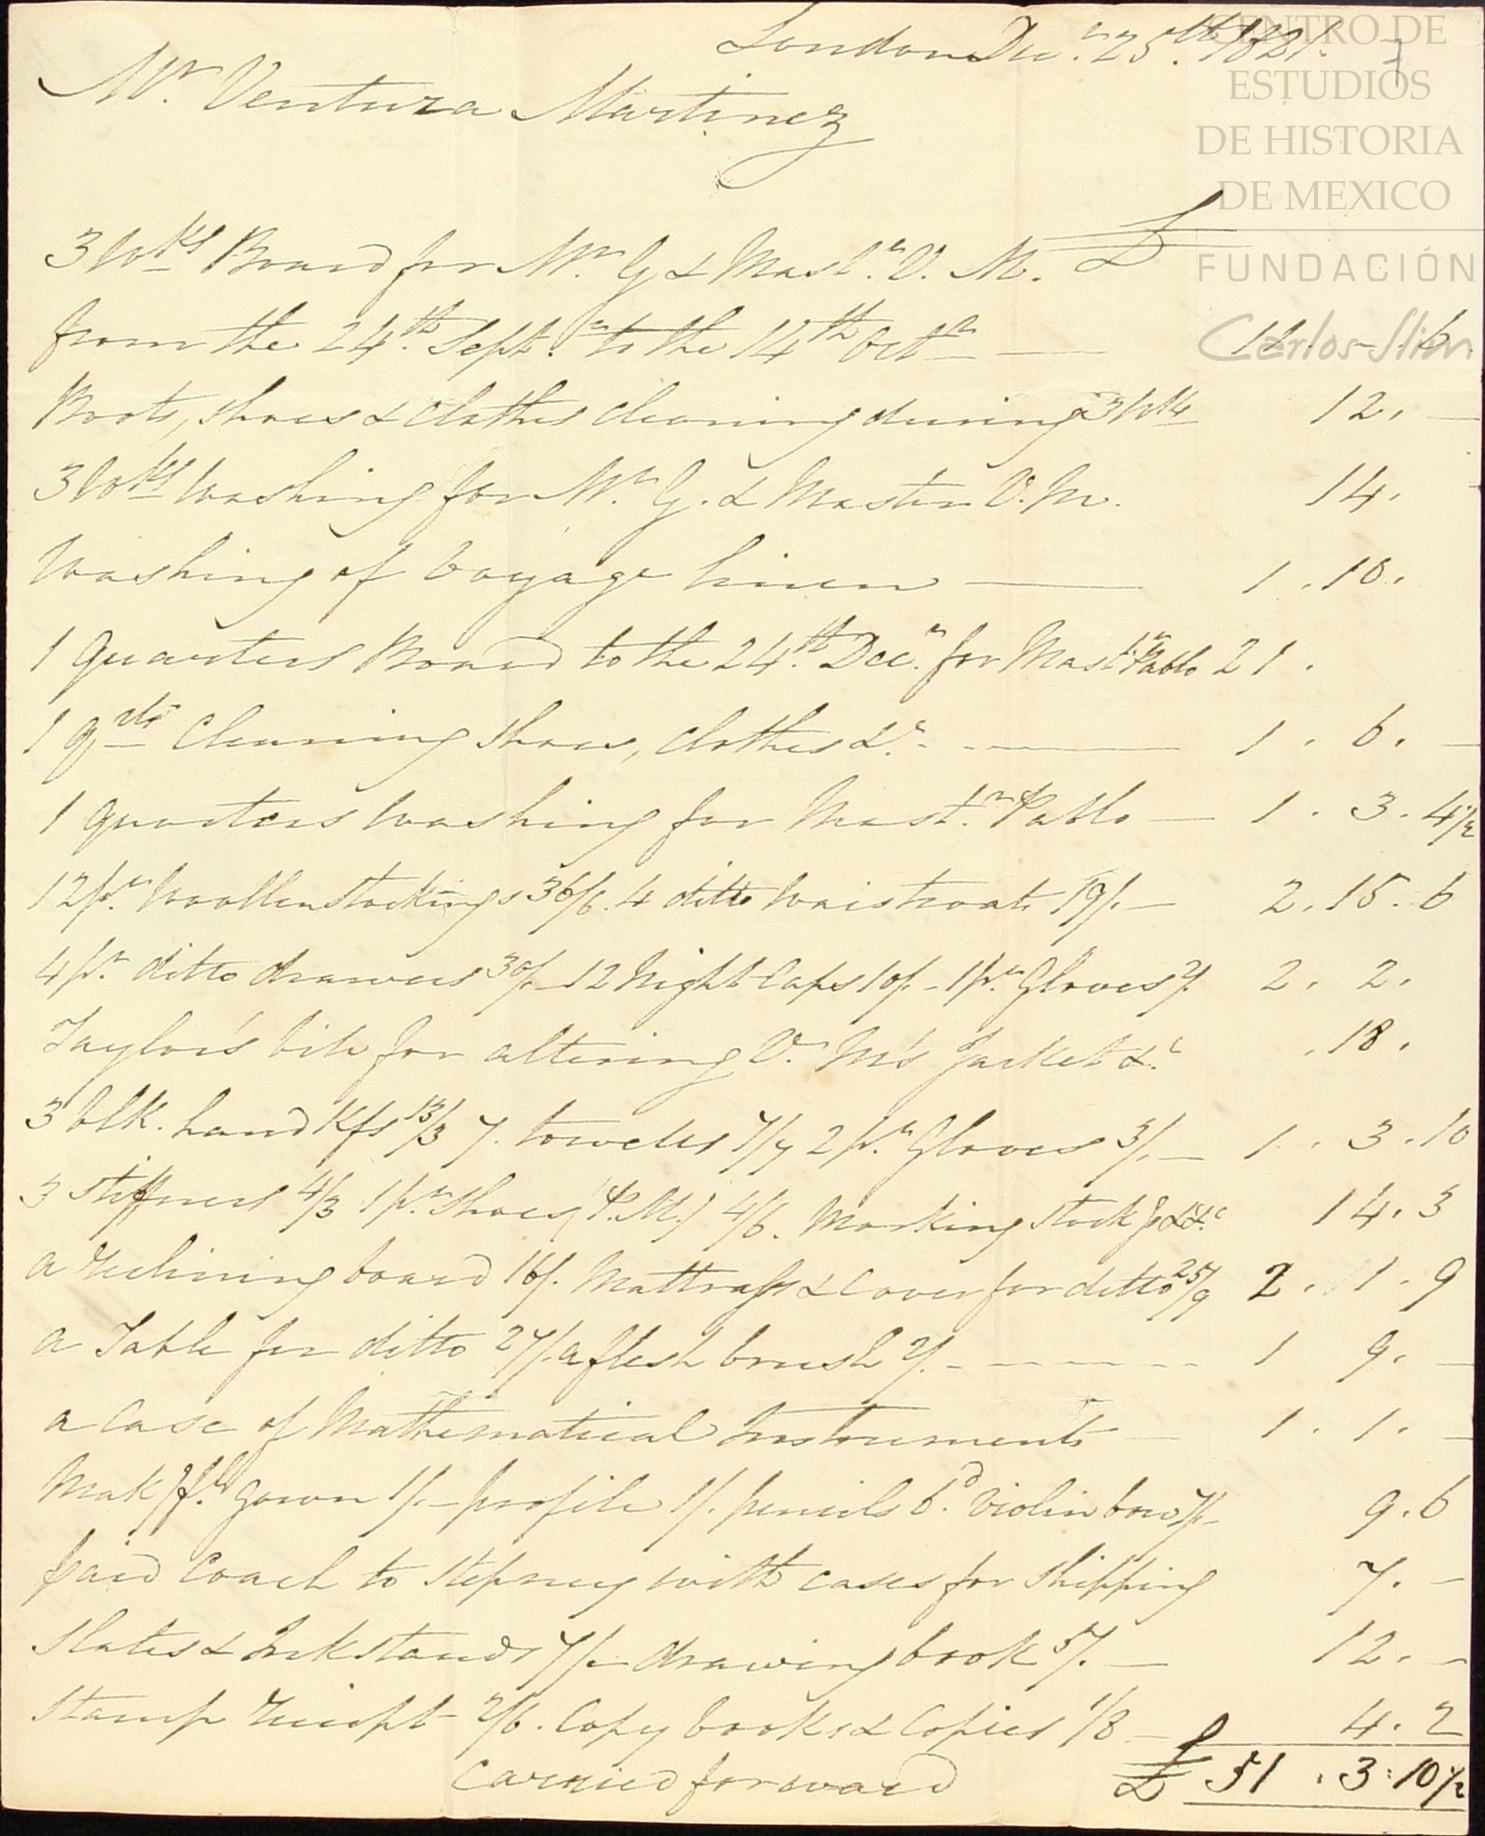 London Decr. 25th. 1821.
7
Mr. Ventura Martinez
£
3 Wks Board for Mr. G & Mastr. V. M.
from the 24th. Septr. to the 14th Octr — 12 . — . 6
Boots, shoes & clothes cleaning during 3 Wks 12. —
3 Wks Washing for Mr. G. & Master V. M. 14.
Washing of Voyage linen — 1 . 10.
1 quarters Board to the 24th. Decr. for Mastr. Pablo 21 .
1 qrs cleaning shoes, clothes &c. — 1 . 6. —
1 quarters Washing for Mastr. Pablo — 1 . 3 . 4½
12 pr. Woollen stockings 36/6. 4 ditto Waistcoats 19/. — 2 . 15 . 6
4 pr. ditto drawers 30/. — 12 Night Caps 10/. — 1 pr. Gloves 2/. 2 . 2 .
Taylor's bill for altering V. M's Jacket &c. . 18 .
3 blk. handkfs 13/3 7. towells 7/7 2 pr. Gloves 3/. — 1 . 3 . 10
3 stiffners 4/3 1 pr. Shoes (P.M.) 4/6. Marking stock gs &c. 14 . 3
a reclining board 16/. Mattrass & Cover for ditto 25/9 2 . 1 . 9
a Table for ditto 27/. a flesh brush 2/. — 1 9. —
a Case of Mathematical Instruments — 1 . 1 . —
Mak g fl. gown 1/. — profile 1/. pencils 6d. Violin bow 7/. — 9 . 6
paid Coach to Stepney with cases for shipping 7 . —
Slates & Inkstands 7/. — drawing book 5/. — 12 . —
Stamp receipt 2/6. Copy books & Copies 1/8 — 4 . 2
Carried forward £ 51 . 3 . 10½
CENTRO DE
ESTUDIOS
DE HISTORIA
DE MEXICO
FUNDACIÓN
Carlos Slim